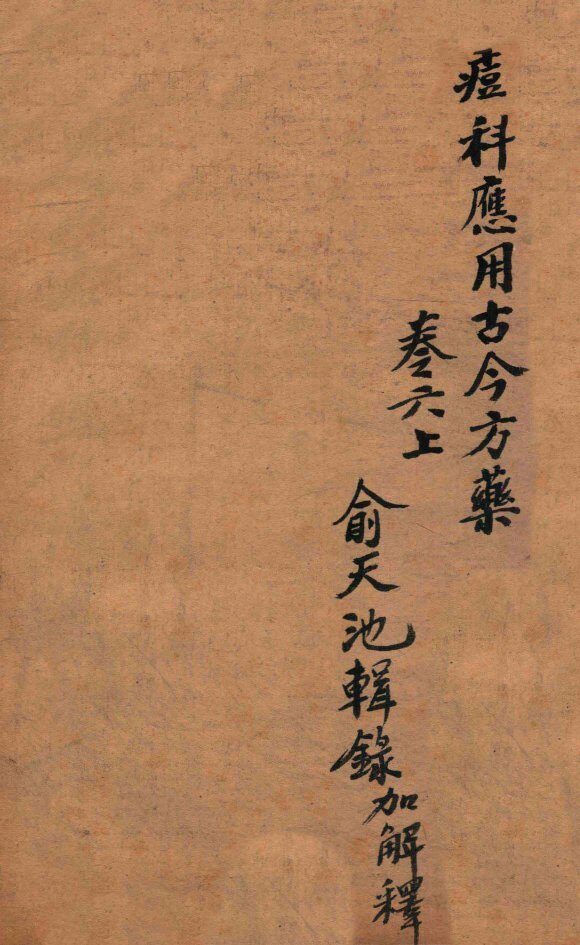 痘科應用古今方藥
卷六上
俞天池輯錄加解釋